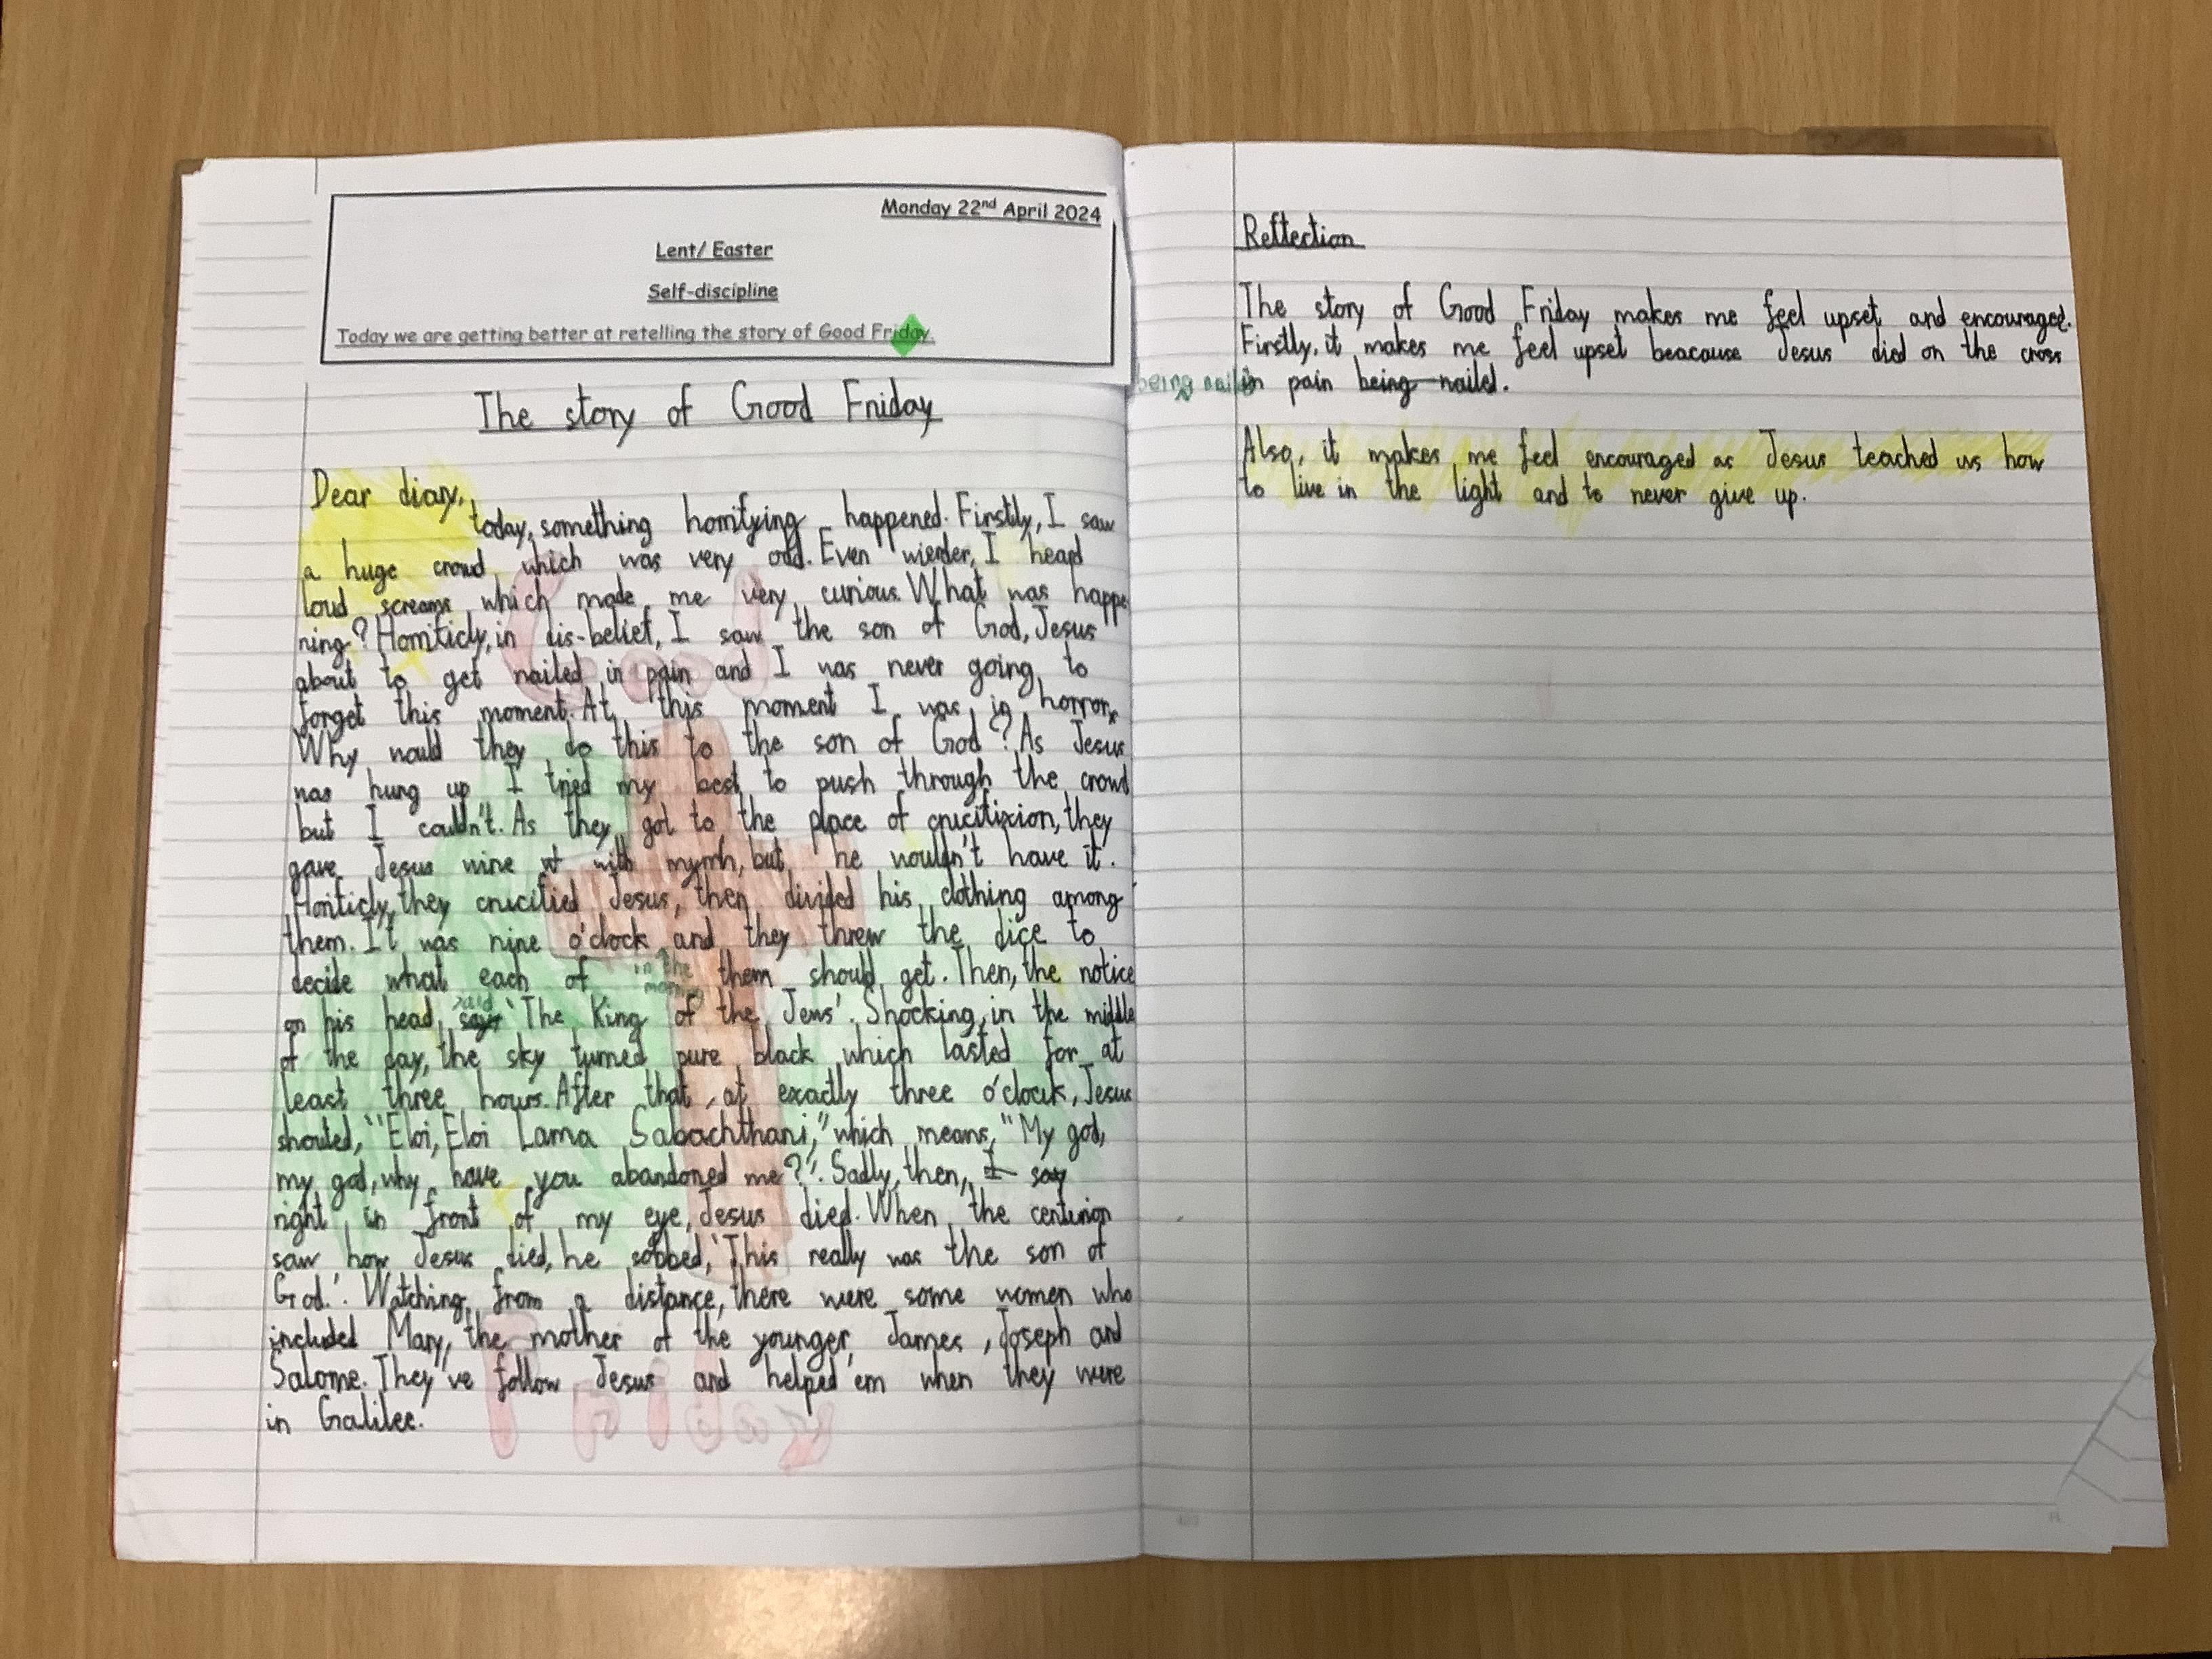 Monday 22nd April 2024
Lent/ Easter
Self-discipline
Today we are getting better at retelling the story of Good Friday.
The story of Good Friday
Dear diary,
today, something horrifying happened. Firstly, I saw
a huge crowd which was very odd. Even wierder, I heard
loud screams which made me very curious. What was happe
ning? Horrificly, in dis-belief, I saw the son of God, Jesus
about to get nailed in pain and I was never going to
forget this moment. At this moment I was in horror.
Why would they do this to the son of God? As Jesus
was hung up I tried my best to push through the crowd
but I couldn't. As they got to the place of crucifixion, they
gave Jesus wine with myrrh, but he wouldn't have it.
Horrificly, they crucified Jesus, then divided his clothing among
them. It was nine o'clock and they threw the dice to
in the
morning
decide what each of them should get. Then, the notice
said
on his head, says 'The King of the Jews'. Shocking, in the middle
of the day, the sky turned pure black which lasted for at
least three hours. After that, at exactly three o'clock, Jesus
shouted, "Eloi, Eloi Lama Sabachthani," which means, "My god,
my god, why have you abandoned me?". Sadly, then, I say
right in front of my eye, Jesus died. When the centurion
saw how Jesus died, he sobbed, 'This really was the son of
God.'. Watching from a distance, there were some women who
included Mary, the mother of the younger James, Joseph and
Salome. They've follow Jesus and helped 'em when they were
in Galilee.
Good
Friday
Reflection
The story of Good Friday makes me feel upset and encouraged.
Firstly, it makes me feel upset beacause Jesus died on the cross
being nailed
in pain being nailed.
Also, it makes me feel encouraged as Jesus teached us how
to live in the light and to never give up.